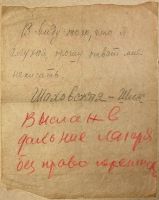 В виду того, что я
глухой прошу писать мне
написать.
Шаховская-Шик
Выслан в
дальние лагеря
без права переписки